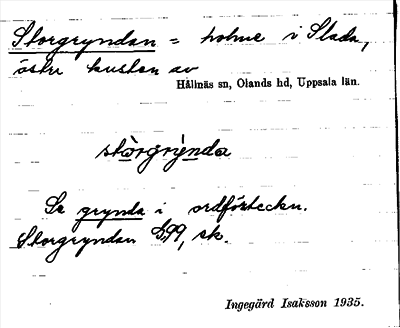 Storgryndan = holme i Slada,
östra kusten av
Hållnäs sn, Olands hd, Uppsala län.
stòrgrýnda
Se grynda i ordförteckn.
Storgryndan 99, sk.
Ingegärd Isaksson 1935.